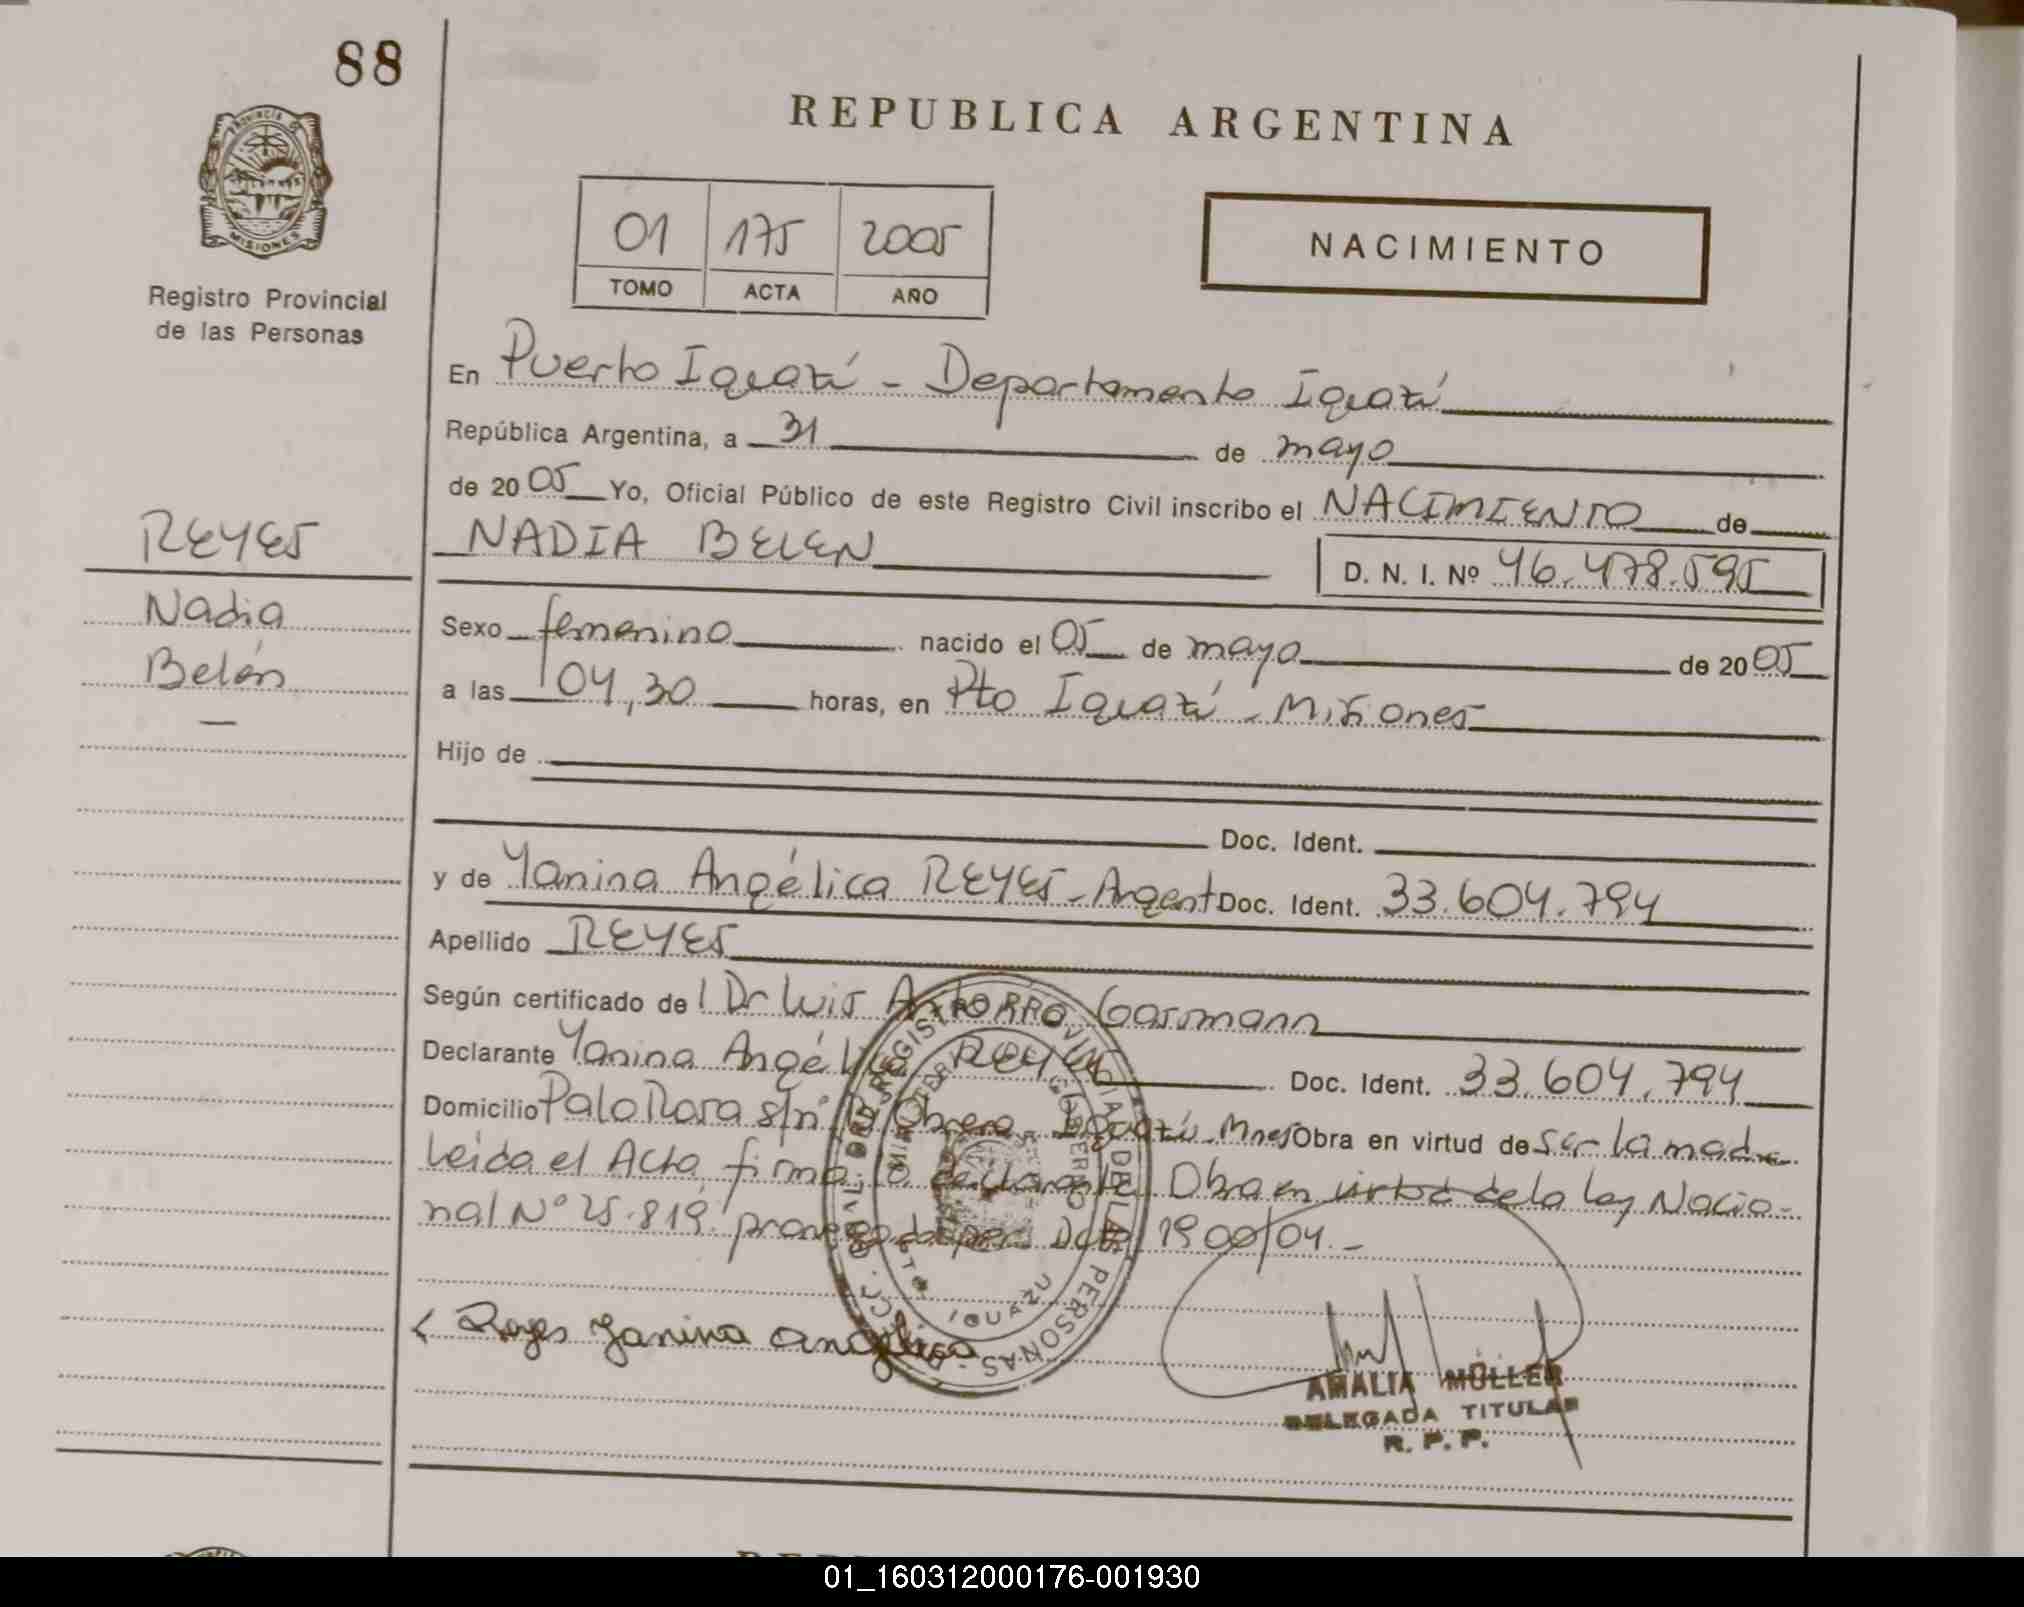 88
REPUBLICA ARGENTINA
PROVINCIA DE
MISIONES
Registro Provincial
de las Personas
01 175 2005
TOMO ACTA AÑO
NACIMIENTO
En Puerto Iguazú - Departamento Iguazú
República Argentina, a 31 de mayo
de 2005 Yo, Oficial Público de este Registro Civil inscribo el NACIMIENTO de
REYES
NADIA BELEN
D. N. I. Nº 46.478.595
Nadia
Belén
Sexo femenino nacido el 05 de mayo de 2005
a las 04,30 horas, en Pto Iguazú - Misiones
Hijo de
Doc. Ident.
y de Yanina Angélica REYES - Argent Doc. Ident. 33.604.794
Apellido REYES
Según certificado del Dr Luis Gassmann
Declarante Yanina Angélica REYES Doc. Ident. 33.604.794
Domicilio Palo Rosa s/nº Iguazú - Mnes Obra en virtud de ser la madre
Leída el Acta, firma la declarante. Obra en virtud de la ley Nacio-
nal Nº 25.819 Dcto 1900/04.-
REGISTRO PROVINCIAL DE LAS PERSONAS
PTO IGUAZU
Reyes Yanina Angélica
AMALIA MÜLLER
DELEGADA TITULAR
R. P. P.
01_160312000176-001930